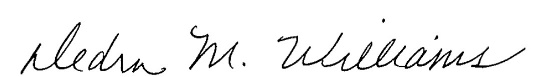 Dedra M. Williams